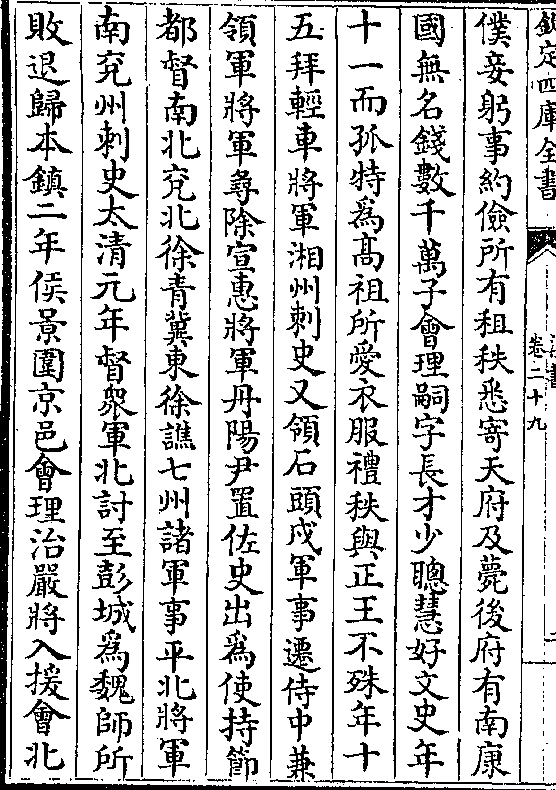 欽定四庫全書
卷二十九
僕妾躬事約儉所有租秩悉寄天府及薨後府有南康
國無名錢數千萬子會理嗣字長才少聰慧好文史年
十一而孤特為髙祖所愛衣服禮秩與正王不殊年十
五拜輕車將軍湘州刺史又領石頭戍軍事遷侍中兼
領軍將軍尋除宣惠將軍丹陽尹置佐史出為使持節
都督南北兗北徐青冀東徐譙七州諸軍事平北將軍
南兗州刺史太清元年督衆軍北討至彭城為魏師所
敗退歸本鎮二年侯景圍京邑會理治嚴將入援會北